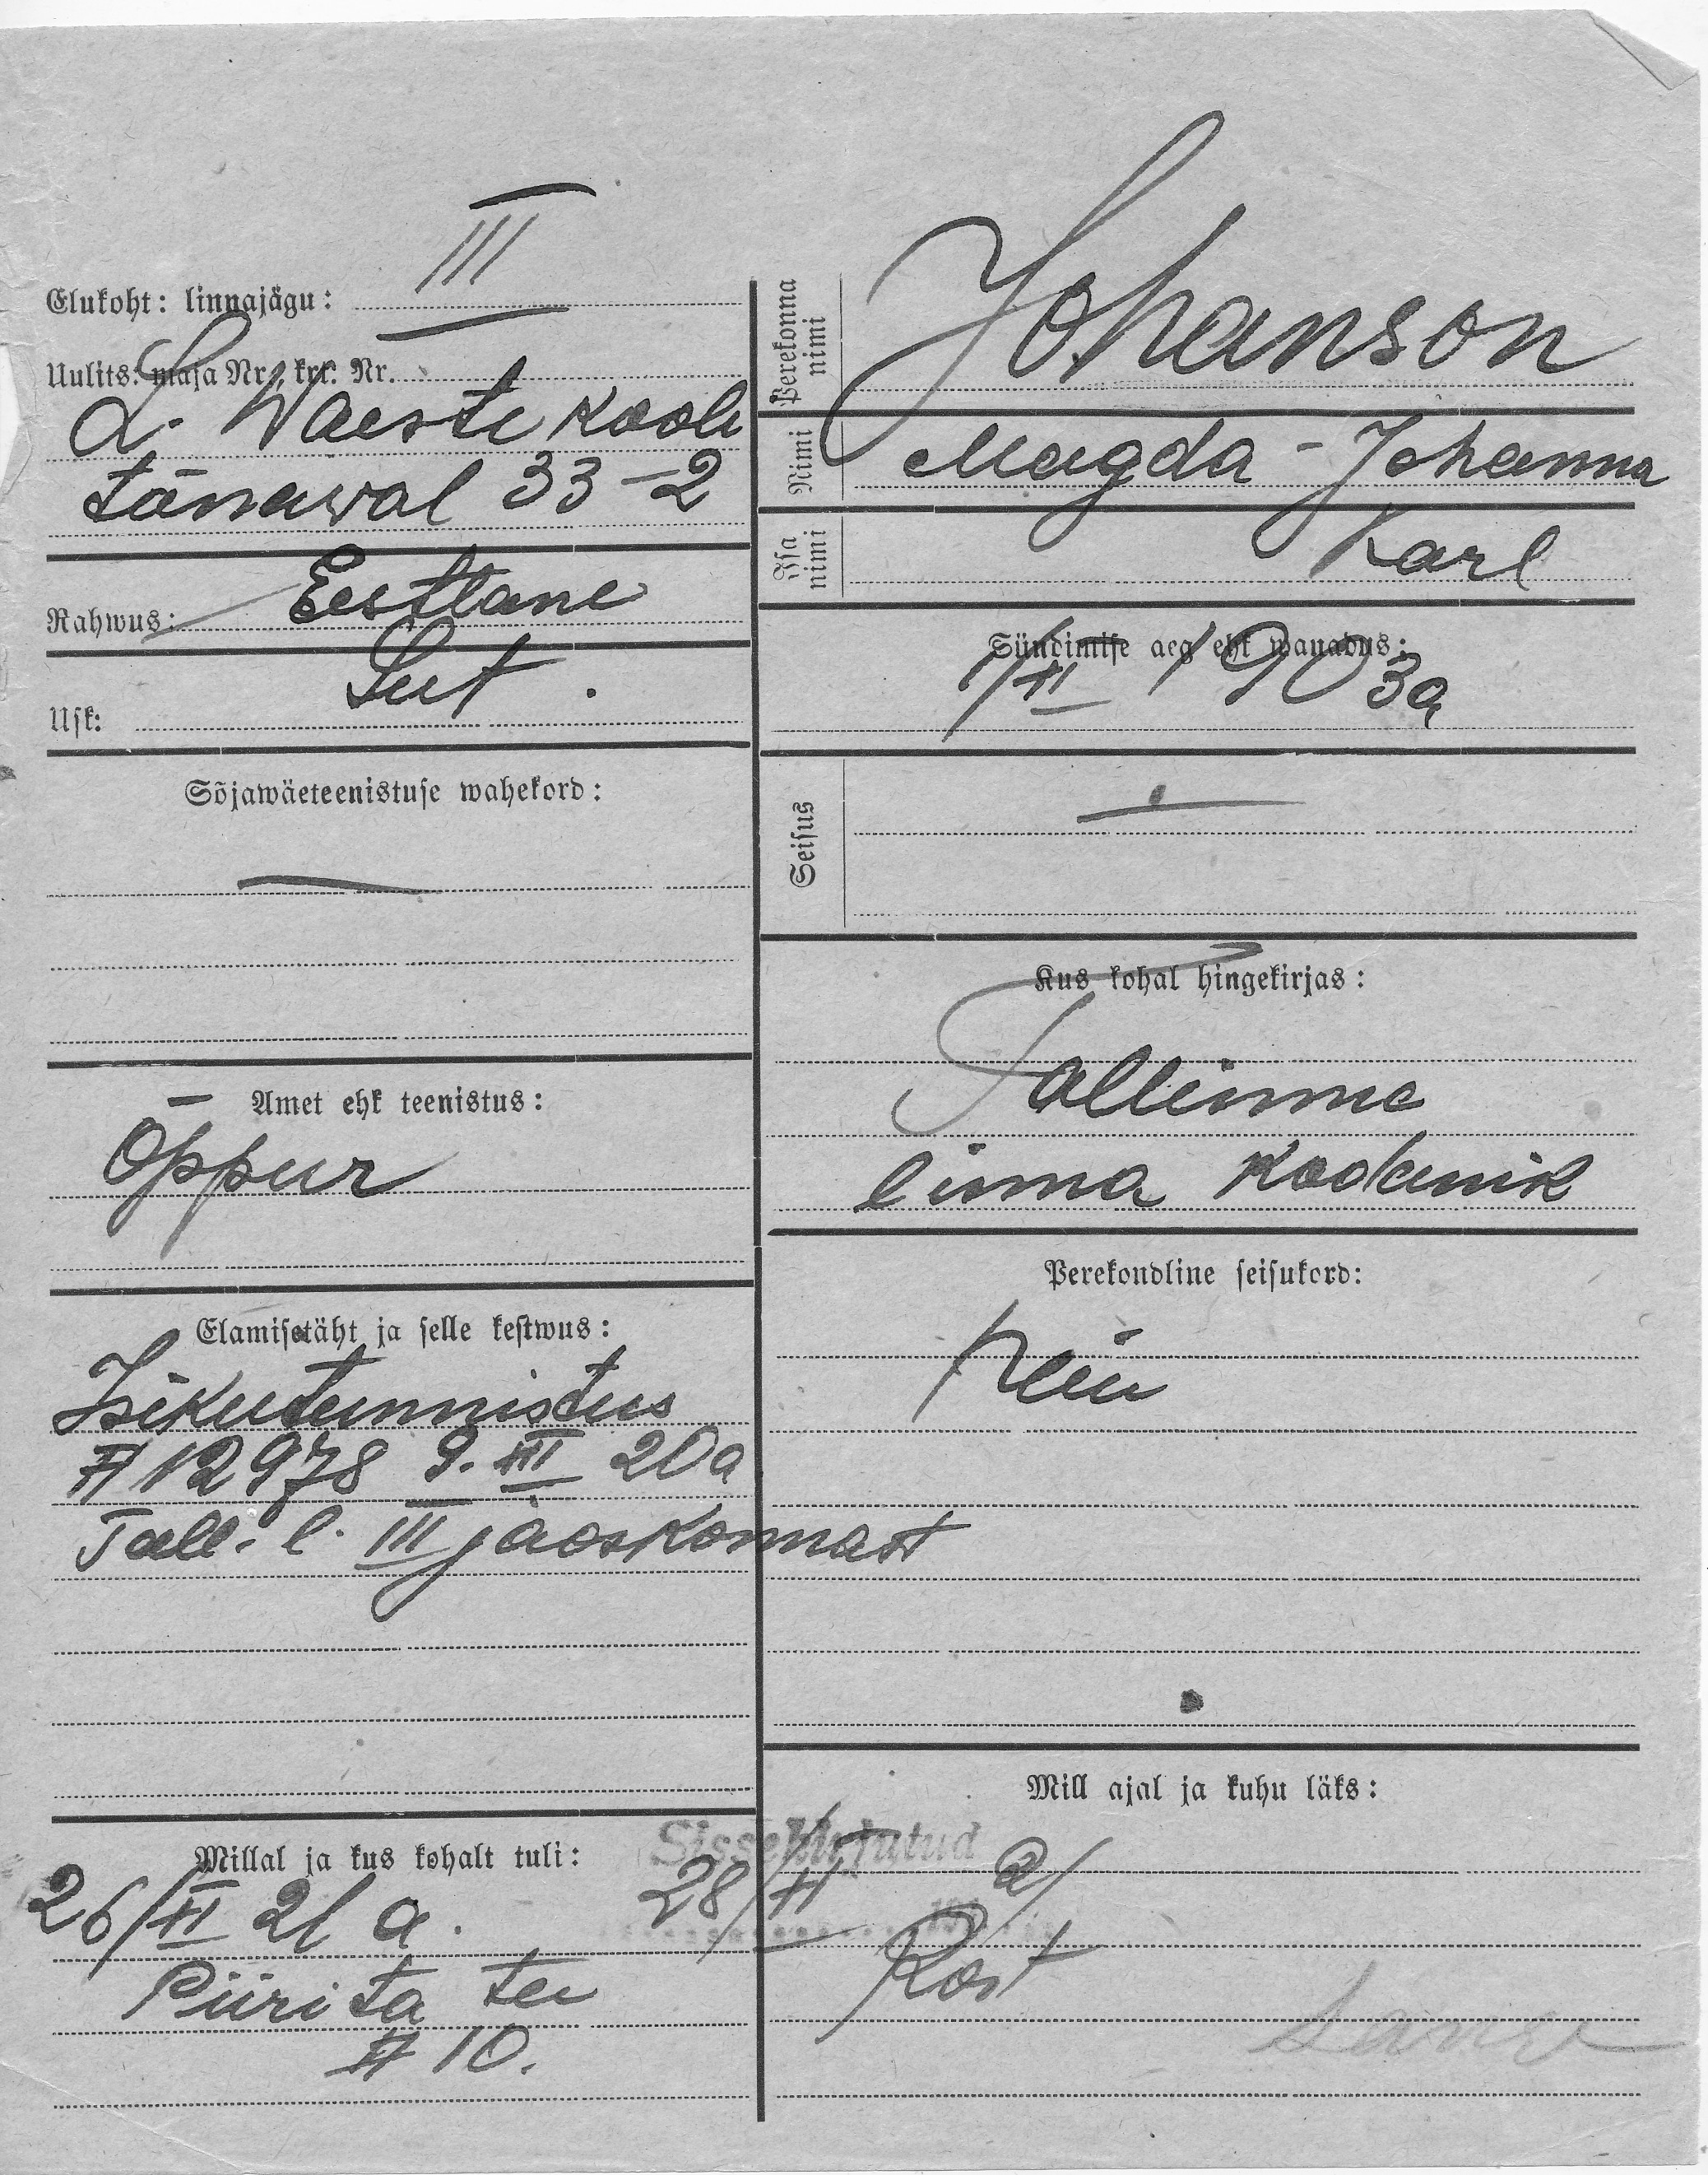 Elukoht: linnajägu: III
Uulits: maja Nr., krt. Nr.
L. Waestekooli
tänawal 33-2
Rahwus: Eestlane
Usk: Lut.
Sõjawäeteenistuse wahekord:
—
Amet ehk teenistus:
Õppur
Elamisetäht ja selle kestwus:
Isikutunnistus
№ 12978 9. III 20a
Tall. l. III jaoskonnast
Millal ja kus kohalt tuli:
26/II 21 a.
Piirita tee
№ 10.
Perekonna nimi Johanson
Nimi Magda-Johanna
Isa nimi Karl
Sündimise aeg ehk wanadus:
1903a
Seisus
—
Kus kohal hingekirjas:
Tallinna
linna kodanik
Perekondline seisukord:
Neiu
Mill ajal ja kuhu läks:
Sissekirjutud
28/II 21